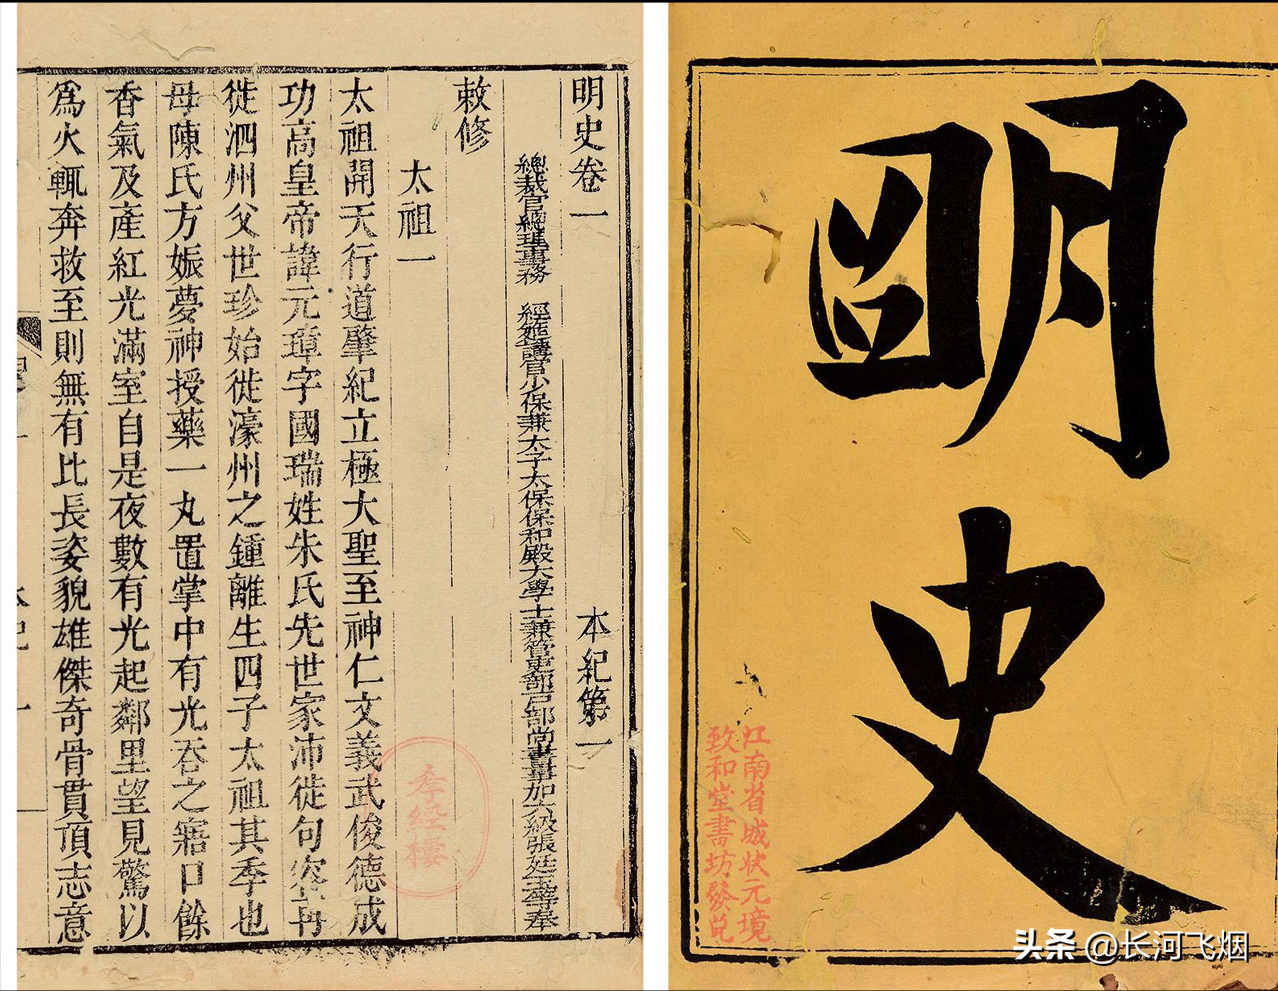 明史
江南省城狀元境
致和堂書坊發兌
明史卷一 本紀第一
總裁官總理事務 經筵講官少保兼太子太保保和殿大學士兼管吏部戶部尚書事加六級張廷玉等奉
敕修
太祖一
太祖開天行道肇紀立極大聖至神仁文義武俊德成
功高皇帝諱元璋字國瑞姓朱氏先世家沛徙句容再
徙泗州父世珍始徙濠州之鍾離生四子太祖其季也
母陳氏方娠夢神授藥一丸置掌中有光吞之寤口餘
香氣及產紅光滿室自是夜數有光起鄰里望見驚以
為火輒奔救至則無有比長姿貌雄傑奇骨貫頂志意
頭条 @长河飞烟